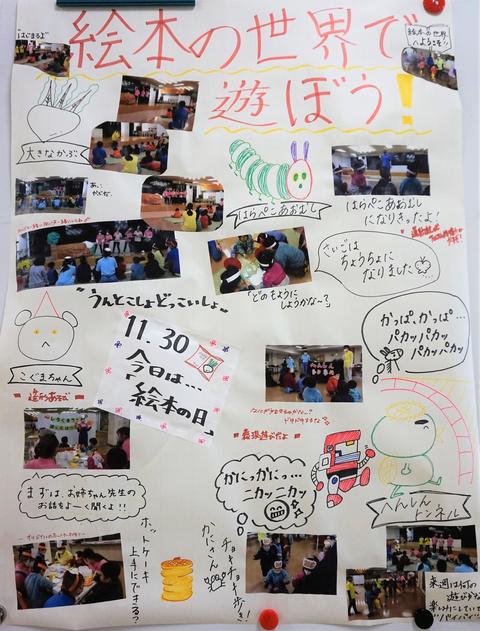 はじまるよ
絵本の世界で
遊ぼう!
絵本の世界
へようこそ!!
大きなかぶ
はらぺこあおむし
はらぺこあおむし
になりきったよ!
さいごは
ちょうちょに
なりました
"うんとこしょどっこいしょ"
「どのもように
しようかな〜?」
こぐまちゃん
造形あそび
11.30
今日は…
「絵本の日」
かっぱ、かっぱ…
パカッパカッ
パカッパカッ
表現遊びだよ
かにっかにっ…
ニカッニカッ
へんしん
トンネル
まずは、お姉ちゃん先生の
お話をよーく聞くよ!!
ホットケーキ
上手にできる?
かにさん
チョキチョキ歩き!
来週は何の